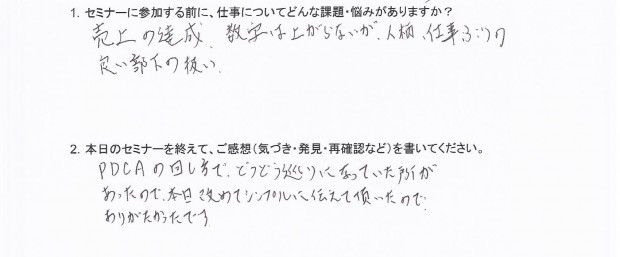 1. セミナーに参加する前に、仕事についてどんな課題・悩みがありますか？
売上の達成、数字は上がらないが、人柄、仕事ぶりの
良い部下の扱い、
2. 本日のセミナーを終えて、ご感想（気づき・発見・再確認など）を書いてください。
PDCAの回し方で、どうどう巡りになっていた所が
あったので、本日改めてシンプルに伝えて頂いたので、
ありがたかったです